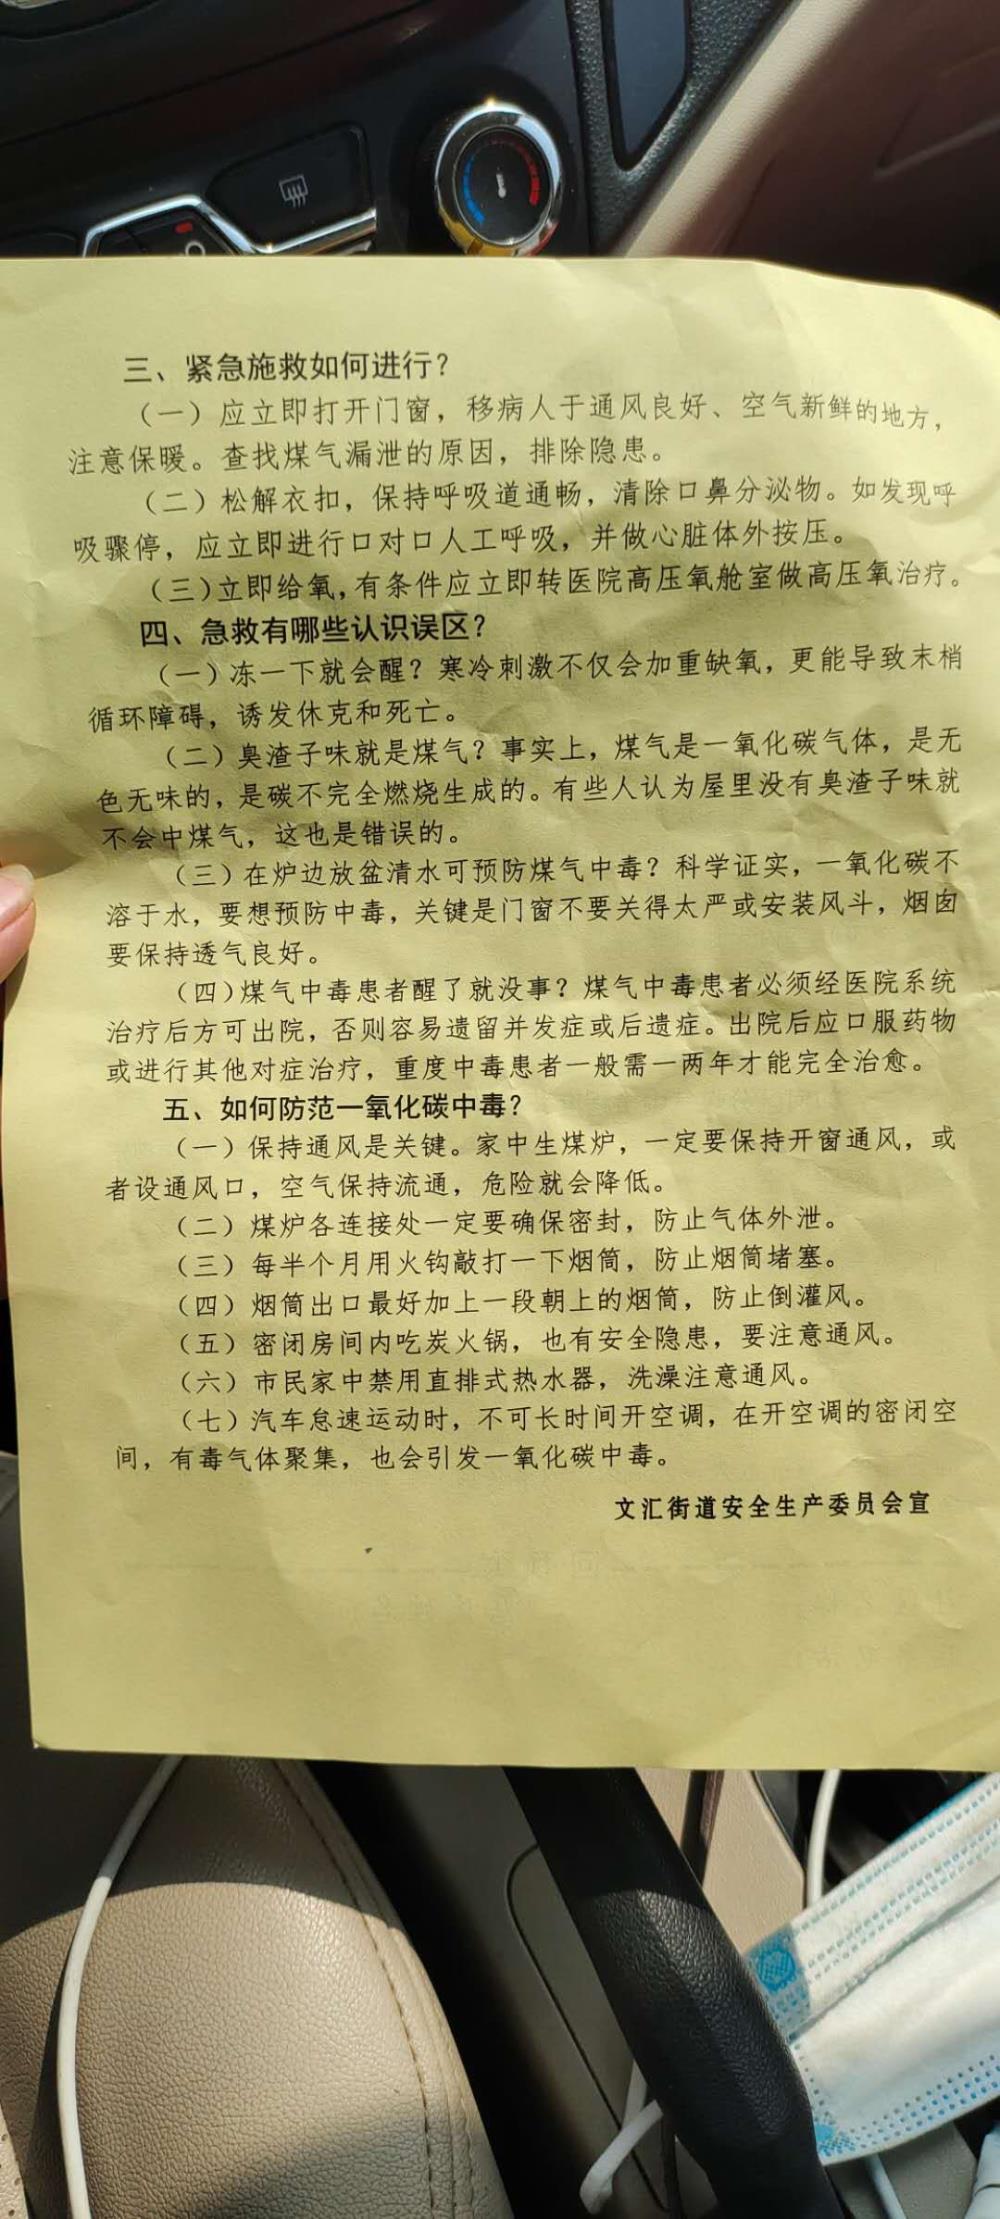 三、紧急施救如何进行？
（一）应立即打开门窗，移病人于通风良好、空气新鲜的地方，
注意保暖。查找煤气漏泄的原因，排除隐患。
（二）松解衣扣，保持呼吸道通畅，清除口鼻分泌物。如发现呼
吸骤停，应立即进行口对口人工呼吸，并做心脏体外按压。
（三）立即给氧，有条件应立即转医院高压氧舱室做高压氧治疗。
四、急救有哪些认识误区？
（一）冻一下就会醒？寒冷刺激不仅会加重缺氧，更能导致末梢
循环障碍，诱发休克和死亡。
（二）臭渣子味就是煤气？事实上，煤气是一氧化碳气体，是无
色无味的，是碳不完全燃烧生成的。有些人认为屋里没有臭渣子味就
不会中煤气，这也是错误的。
（三）在炉边放盆清水可预防煤气中毒？科学证实，一氧化碳不
溶于水，要想预防中毒，关键是门窗不要关得太严或安装风斗，烟囱
要保持透气良好。
（四）煤气中毒患者醒了就没事？煤气中毒患者必须经医院系统
治疗后方可出院，否则容易遗留并发症或后遗症。出院后应口服药物
或进行其他对症治疗，重度中毒患者一般需一两年才能完全治愈。
五、如何防范一氧化碳中毒？
（一）保持通风是关键。家中生煤炉，一定要保持开窗通风，或
者设通风口，空气保持流通，危险就会降低。
（二）煤炉各连接处一定要确保密封，防止气体外泄。
（三）每半个月用火钩敲打一下烟筒，防止烟筒堵塞。
（四）烟筒出口最好加上一段朝上的烟筒，防止倒灌风。
（五）密闭房间内吃炭火锅，也有安全隐患，要注意通风。
（六）市民家中禁用直排式热水器，洗澡注意通风。
（七）汽车怠速运动时，不可长时间开空调，在开空调的密闭空
间，有毒气体聚集，也会引发一氧化碳中毒。
文汇街道安全生产委员会宣